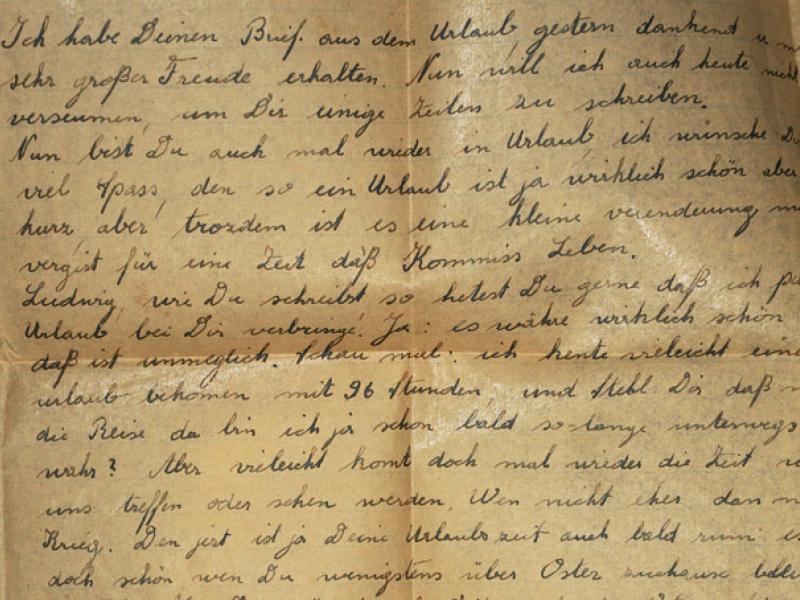 Ich habe Deinen Brief. aus dem Urlaub, gestern dankend u. m
sehr großer Freude erhalten. Nun will ich auch heute nicht
verseumen, um Dir einige Zeilen zu schreiben.
Nun bist Du auch mal wieder in Urlaub, ich wünsche D
viel Spass, den so ein Urlaub ist ja wirklich schön aber
kurz, aber trozdem ist es eine kleine verenderung
vergist für eine Zeit daß Kommiss Leben.
Ludwig, wie Du schreibst so hetest Du gerne daß ich
Urlaub bei Dir verbringe. Ja: es währe wirklich schön
daß ist unmöglich. Schau mal: ich kente vieleicht eine
urlaub bekomen mit 96 Stunden, und Stehl Dir daß
die Reise da bin ich ja schon bald so-lange unterwegs
wahr? Aber vieleicht komt doch mal wieder die Zeit
uns treffen oder sehen werden. Wen nicht eher dan
Krieg. Den jezt ist ja Deine Urlaubszeit auch bald rum
doch schön wen Du wenigstens über Oster zuhause